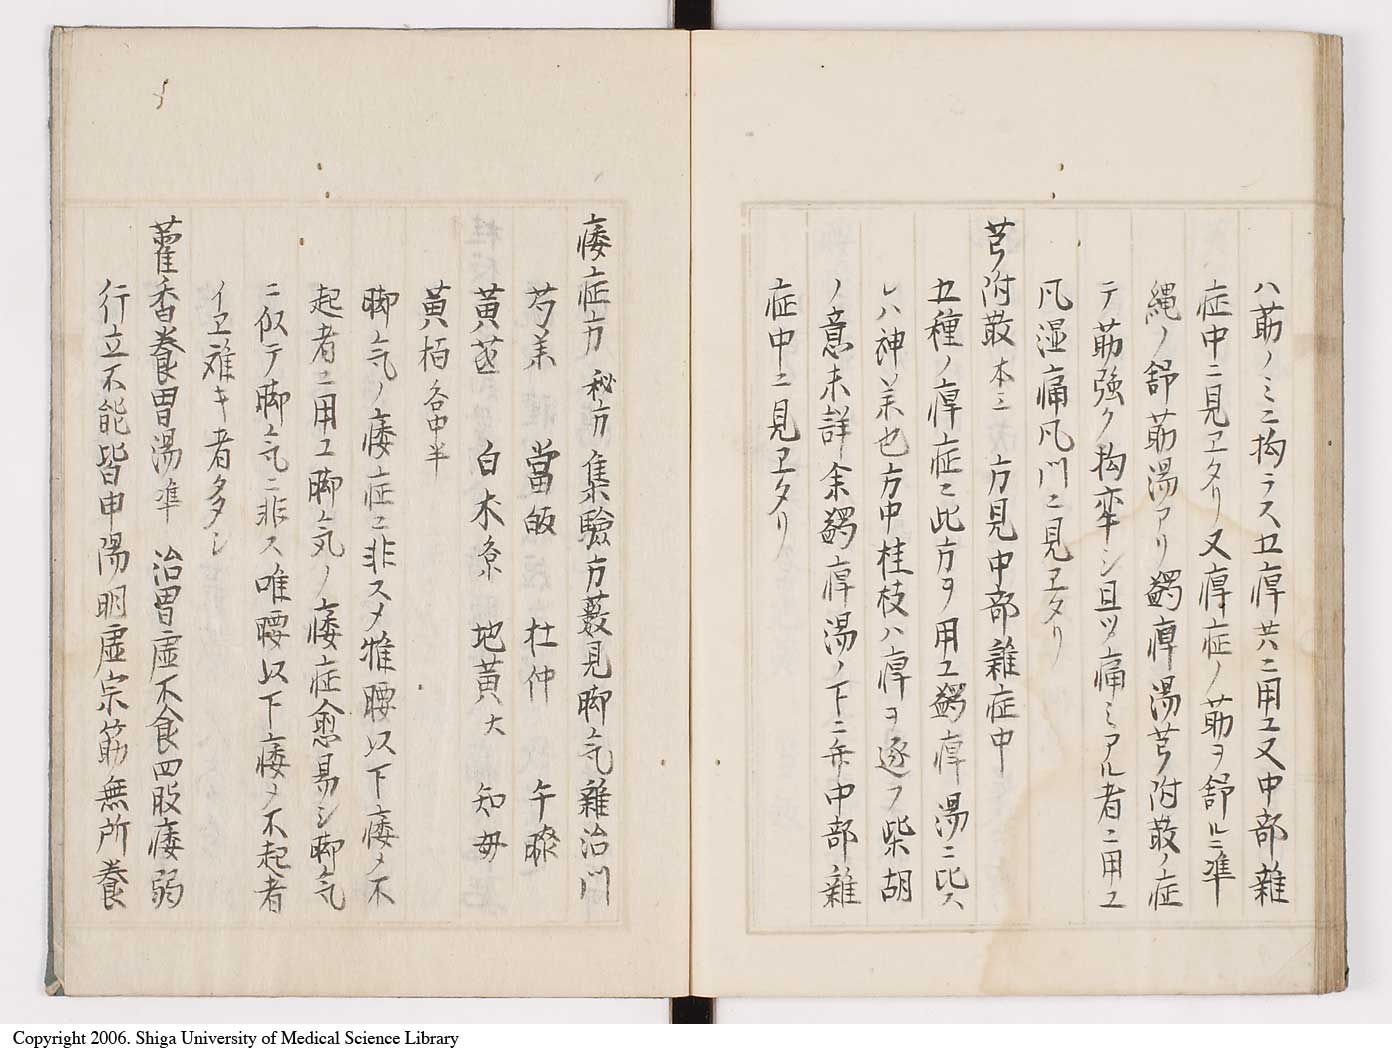 ハ筋ノミニ拘ラス五痺共ニ用ユ又中部雜
症中ニ見ヱタリ又痺症ノ筋ヲ舒ルニ準
縄ノ舒筋湯アリ蠲痺湯芎附散ノ症
テ筋強ク拘牽シ且ツ痛ミアル者ニ用ユ
凡湿痛凡門ニ見ヱタリ
芎附散 本三 方見中部雜症中
五種ノ痺症ニ此方ヲ用ユ蠲痺湯ニ比ス
レハ神美也方中桂枝ハ痺ヲ逐フ柴胡
ノ意未詳余蠲痺湯ノ下ニ弁中部雜
症中ニ見ヱタリ
痿症方 秘方 集驗方薮見脚气雜治門
芍薬 當皈 杜仲 牛膝
黄芪 白朮 地黄大 知母
黄栢各中半
脚气ノ痿症ニ非スメ惟腰以下痿メ不
起者ニ用ユ脚气ノ痿症愈易シ脚气
ニ似テ脚气ニ非ス唯腰以下痿メ不起者
イヱ難キ者多シ
藿香養胃湯準 治胃虚不食四肢痿弱
行立不能皆由陽明虚宗筋無所養
Copyright 2006. Shiga University of Medical Science Library